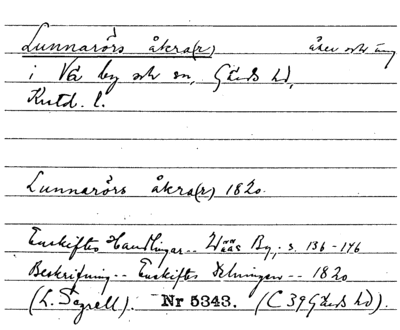 Lunnarörs åkra(r) åker och äng
i Vä by och sn, Gärds hd,
Kristd. l.
Lunnarörs åkra(r) 1820.
Enskiftes Handlingar.. Wä By, s. 136-146
Beskrifning -- Enskiftes Delningen -- 1820
(L. Pagrell). Nr 5343. (C 39 Gärds hd).